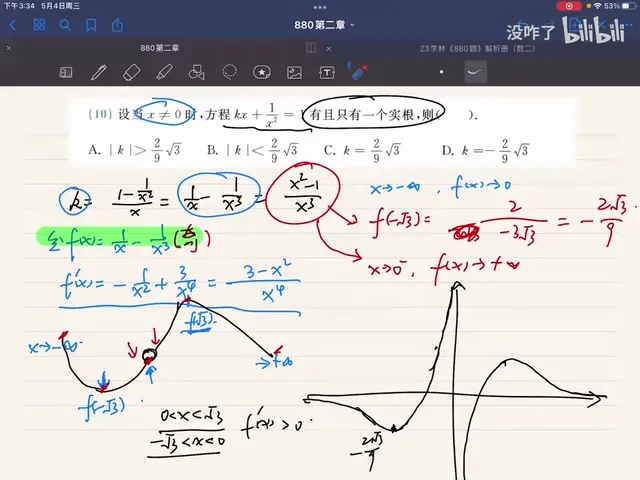 下午3:34 5月4日周三
880第二章
53%
没咋了 bilibili
880第二章
23李林《880题》解析册（数二）
(10) 设当 x ≠ 0 时,方程 kx + 1/x² = 1 有且只有一个实根,则( ).
A. |k| > 2/9 √3 B. |k| < 2/9 √3 C. k = 2/9 √3 D. k = - 2/9 √3
k = (1 - 1/x²)/x = 1/x - 1/x³ = (x²-1)/x³
x→-∞, f(x)→0
f(-√3) = 2/(-3√3) = - 2√3/9
令 f(x) = 1/x - 1/x³
x→0⁻, f(x)→+∞
f'(x) = - 1/x² + 3/x⁴ = (3-x²)/x⁴
f(√3)
x→-∞
→+∞
f(-√3)
0<x<√3
-√3<x<0
f'(x)>0
- 2√3/9